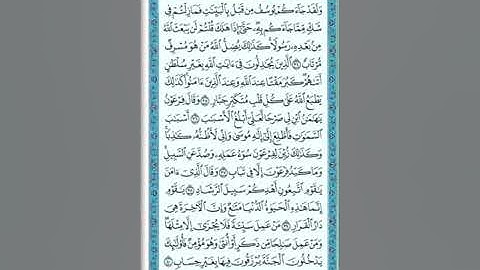 وَلَقَدْ جَاءَكُمْ يُوسُفُ مِن قَبْلُ بِالْبَيِّنَاتِ فَمَا زِلْتُمْ فِي
شَكٍّ مِّمَّا جَاءَكُم بِهِ حَتَّىٰ إِذَا هَلَكَ قُلْتُمْ لَن يَبْعَثَ اللَّهُ
مِن بَعْدِهِ رَسُولًا كَذَٰلِكَ يُضِلُّ اللَّهُ مَنْ هُوَ مُسْرِفٌ
مُّرْتَابٌ ٣٤ الَّذِينَ يُجَادِلُونَ فِي آيَاتِ اللَّهِ بِغَيْرِ سُلْطَانٍ
أَتَاهُمْ كَبُرَ مَقْتًا عِندَ اللَّهِ وَعِندَ الَّذِينَ آمَنُوا كَذَٰلِكَ
يَطْبَعُ اللَّهُ عَلَىٰ كُلِّ قَلْبِ مُتَكَبِّرٍ جَبَّارٍ ٣٥ وَقَالَ فِرْعَوْنُ
يَا هَامَانُ ابْنِ لِي صَرْحًا لَّعَلِّي أَبْلُغُ الْأَسْبَابَ ٣٦ أَسْبَابَ
السَّمَاوَاتِ فَأَطَّلِعَ إِلَىٰ إِلَٰهِ مُوسَىٰ وَإِنِّي لَأَظُنُّهُ كَاذِبًا
وَكَذَٰلِكَ زُيِّنَ لِفِرْعَوْنَ سُوءُ عَمَلِهِ وَصُدَّ عَنِ السَّبِيلِ
وَمَا كَيْدُ فِرْعَوْنَ إِلَّا فِي تَبَابٍ ٣٧ وَقَالَ الَّذِي آمَنَ
يَا قَوْمِ اتَّبِعُونِ أَهْدِكُمْ سَبِيلَ الرَّشَادِ ٣٨ يَا قَوْمِ
إِنَّمَا هَٰذِهِ الْحَيَاةُ الدُّنْيَا مَتَاعٌ وَإِنَّ الْآخِرَةَ هِيَ
دَارُ الْقَرَارِ ٣٩ مَنْ عَمِلَ سَيِّئَةً فَلَا يُجْزَىٰ إِلَّا مِثْلَهَا
وَمَنْ عَمِلَ صَالِحًا مِّن ذَكَرٍ أَوْ أُنثَىٰ وَهُوَ مُؤْمِنٌ فَأُولَٰئِكَ
يَدْخُلُونَ الْجَنَّةَ يُرْزَقُونَ فِيهَا بِغَيْرِ حِسَابٍ ٤٠